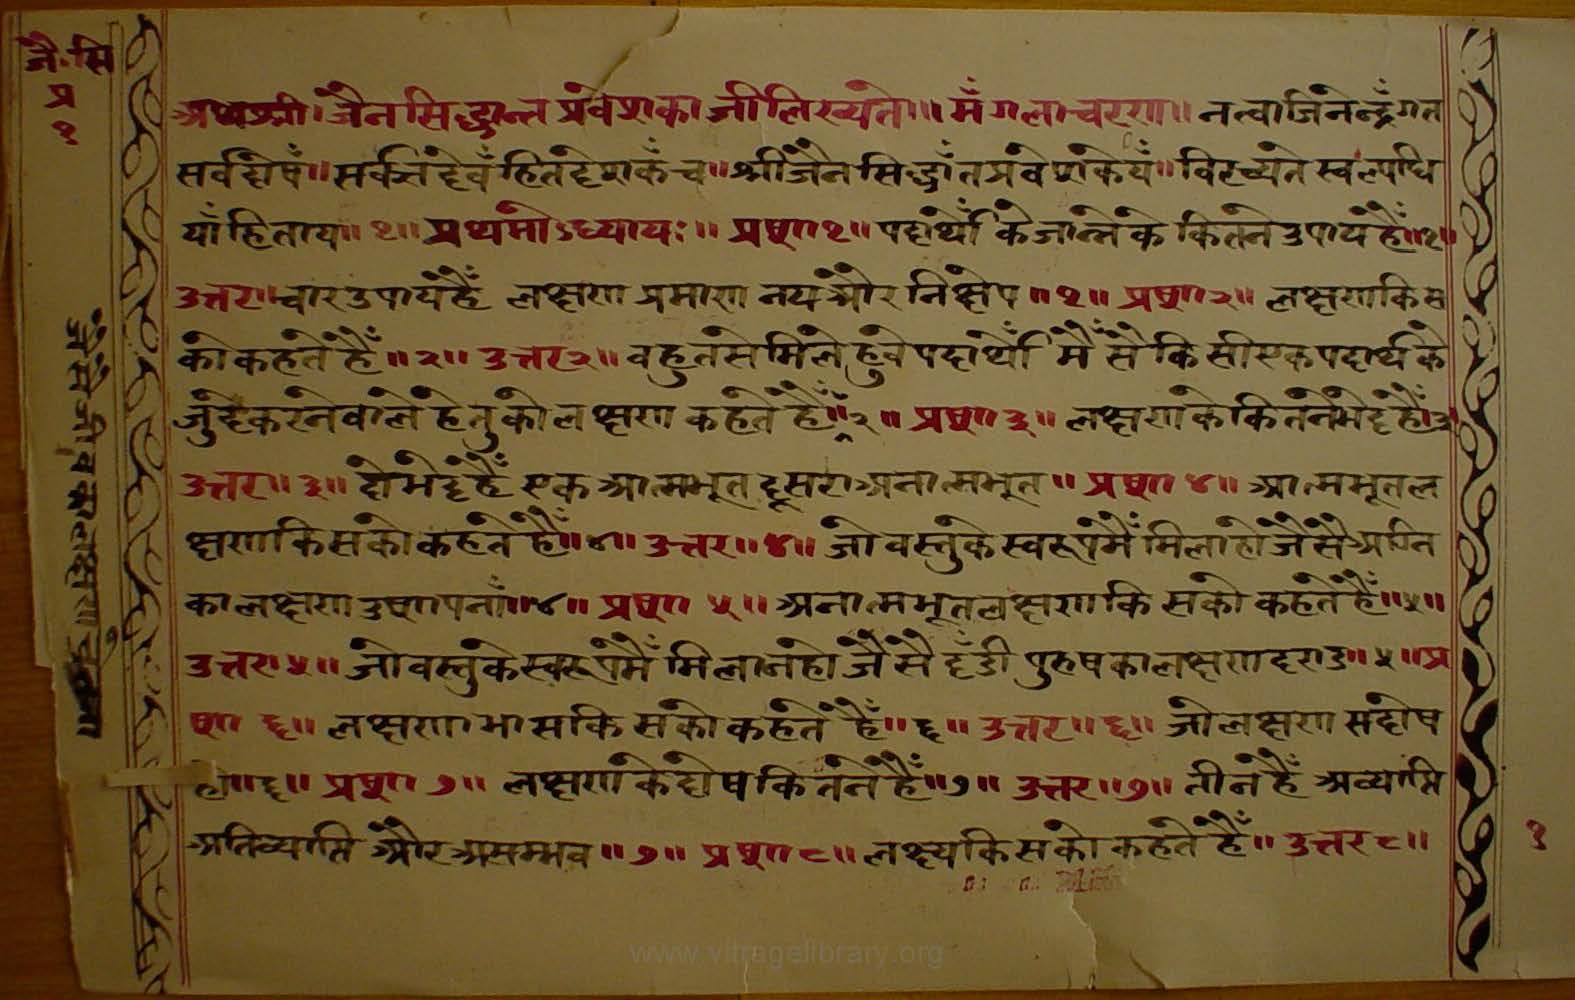 जै.सि
प्र
१
अथ श्री। जैन सिद्धान्त प्रवेशका जी लिख्यते॥ मँगलाचरण॥ नत्वा जिनेन्द्रँ गत
सर्वदोषँ॥ सर्वज्ञ देवँ हित देशकँ च॥ श्री जैन सिद्धाँत प्रवेशकेयँ॥ विरच्यते स्वल्पधि
याँ हिताय॥१॥ प्रथमोऽध्यायः॥ प्रष्ण १॥ पदार्थोँ के जान्ने के कितने उपाय हैँ॥१॥
उत्तर॥ चार उपाय हैँ लक्षण प्रमाण नय और निक्षेप॥१॥ प्रष्ण २॥ लक्षण किस
को कहते हैँ॥२॥ उत्तर २॥ बहुत से मिले हुवे पदार्थोँ मैँ सै किसी एक पदार्थ कै
जुदे करने वाले हेतु को लक्षण कहते हैँ॥२॥ प्रष्ण ३॥ लक्षण के कितने भेद हैँ॥३॥
उत्तर॥३॥ दो भेद हैँ एक आत्मभूत दूसरा अनात्मभूत॥ प्रष्ण ४॥ आत्मभूत ल
क्षण किसको कहते हैँ॥४॥ उत्तर॥४॥ जो वस्तु के स्वरूप मैँ मिला हो जैसै अग्नि
का लक्षण उष्णपनाँ॥४॥ प्रष्ण ५॥ अनात्मभूत लक्षण किसको कहते हैँ॥५॥
उत्तर ५॥ जो वस्तु के स्वरूप मैँ मिला न हो जैसै दँडी पुरुष का लक्षण दण्ड॥५॥ प्र
ष्ण ६॥ लक्षणाभास किसको कहते हैँ॥६॥ उत्तर॥६॥ जो लक्षण सदोष
हो॥६॥ प्रष्ण ७॥ लक्षण के दोष कितने हैँ॥७॥ उत्तर॥७॥ तीन हैँ अव्याप्ति
अतिव्याप्ति और असम्भव॥७॥ प्रष्ण ८॥ लक्ष्य किसको कहते हैँ॥ उत्तर ८॥
१
जैसे जीव का लक्षण
www.vitragelibrary.org